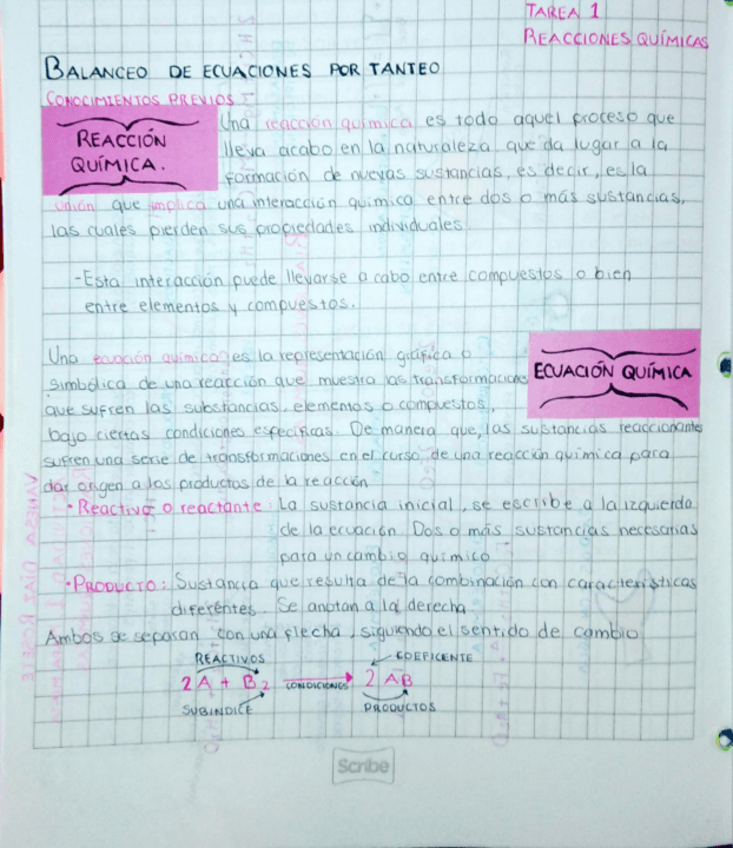 TAREA 1
REACCIONES QUÍMICAS
BALANCEO DE ECUACIONES POR TANTEO
CONOCIMIENTOS PREVIOS:
REACCIÓN
QUÍMICA.
Una reacción química es todo aquel proceso que
lleva acabo en la naturaleza que da lugar a la
formación de nuevas sustancias, es decir, es la
unión que implica una interacción química entre dos o más sustancias,
las cuales pierden sus propiedades individuales
-Esta interacción puede llevarse a cabo entre compuestos o bien
entre elementos y compuestos.
ECUACIÓN QUÍMICA
Una ecuación química es la representación gráfica o
simbólica de una reacción que muestra las transformaciones
que sufren las substancias, elementos o compuestos,
bajo ciertas condiciones específicas. De manera que, las sustancias reaccionantes
sufren una serie de transformaciones en el curso de una reacción química para
dar origen a los productos de la reacción
• Reactivo o reactante: La sustancia inicial, se escribe a la izquierda
de la ecuación. Dos o más sustancias necesarias
para un cambio químico
• PRODUCTO: Sustancia que resulta de la combinación con características
diferentes. Se anotan a la derecha
Ambos se separan con una flecha, siguiendo el sentido de cambio
REACTIVOS COEFICENTE
2A + B2 CONDICIONES 2 AB
SUBINDICE PRODUCTOS
Scribe